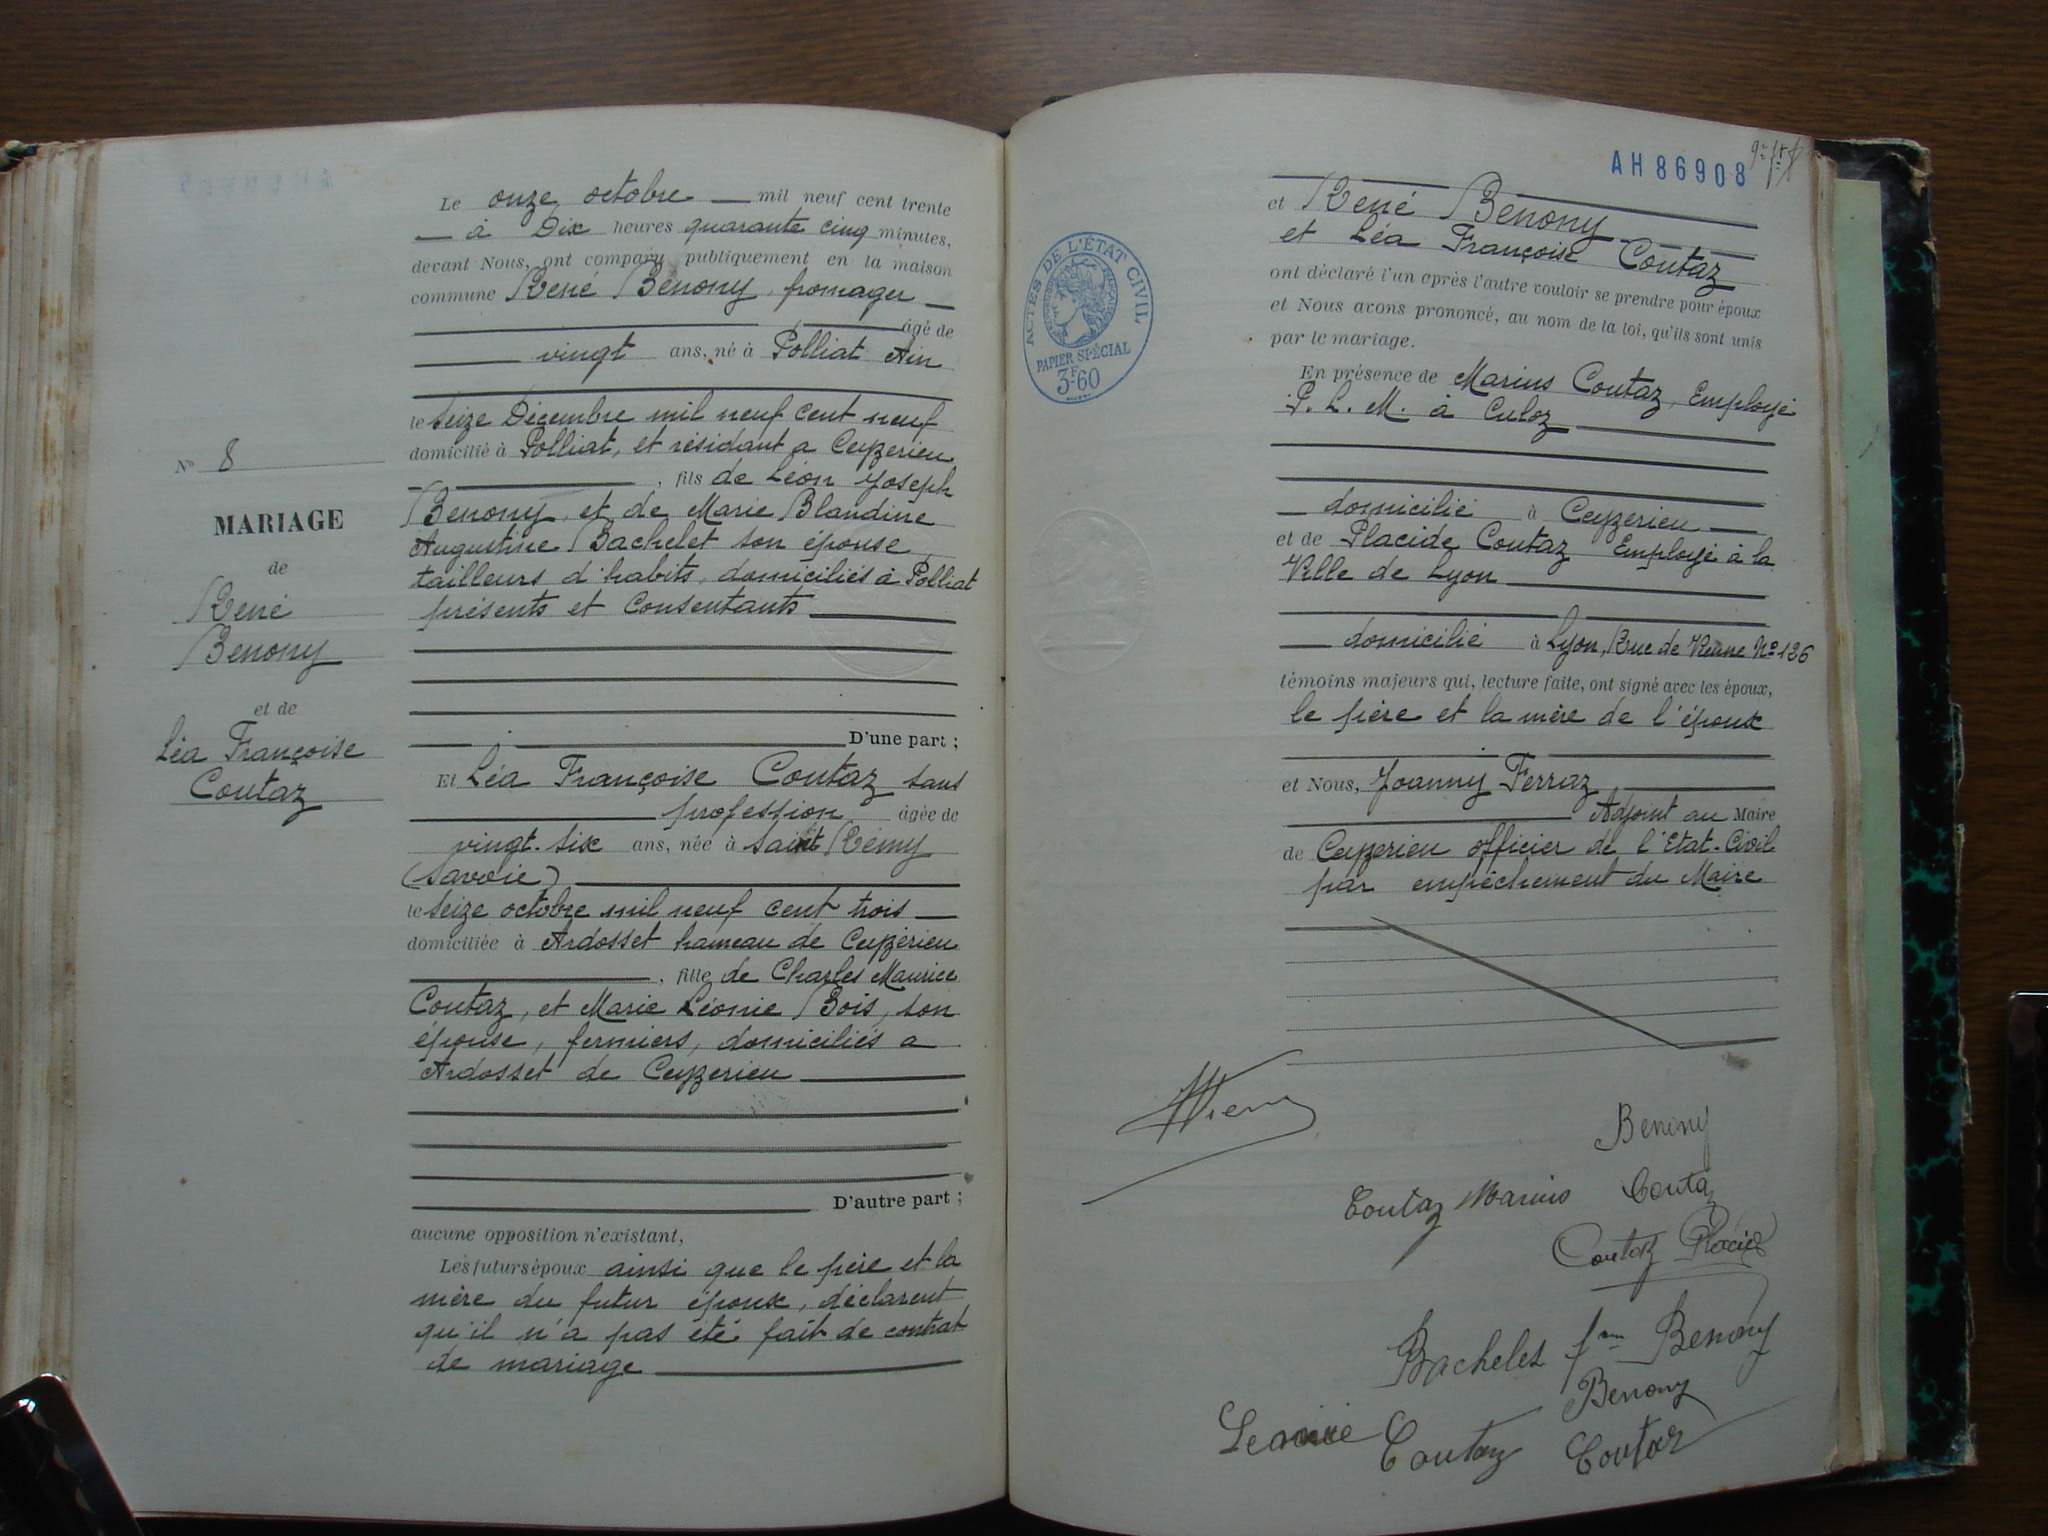 N° 8
MARIAGE
de
René
Benony
et de
Léa Françoise
Coutaz
Le onze octobre mil neuf cent trente
à Dix heures quarante cinq minutes,
devant Nous, ont comparu publiquement en la maison
commune René Benony, fromager
âgé de
vingt ans, né à Polliat Ain
le seize Décembre mil neuf cent neuf
domicilié à Polliat, et résidant a Ceyzerieu
, fils de Léon Joseph
Benony, et de Marie Blandine
Augustine Bachelet son épouse,
tailleurs d'habits, domiciliés à Polliat
présents et Consentants
D'une part ;
Et Léa Françoise Coutaz sans
profession âgée de
vingt-six ans, née à Saint Rémy
(Savoie)
le seize octobre mil neuf cent trois
domiciliée à Ardosset hameau de Ceyzérieu
, fille de Charles Maurice
Coutaz, et Marie Léonie Bois, son
épouse, fermiers, domiciliés a
Ardosset de Ceyzerieu
D'autre part ;
aucune opposition n'existant,
Les futurs époux ainsi que le père et la
mère du futur époux, déclarent
qu'il n'a pas été fait de contrat
de mariage
AH 86908
ACTES DE L'ÉTAT CIVIL
PAPIER SPÉCIAL
3F.60
et René Benony
et Léa Françoise Coutaz
ont déclaré l'un après l'autre vouloir se prendre pour époux
et Nous avons prononcé, au nom de la loi, qu'ils sont unis
par le mariage.
En présence de Marius Coutaz, Employé
P. L. M. à Culoz
domicilié à Ceyzerieu
et de Placide Coutaz Employé à la
Ville de Lyon
domicilié à Lyon, Rue de N° 126
témoins majeurs qui, lecture faite, ont signé avec les époux,
le père et la mère de l'époux
et Nous, Joanny Ferraz
Adjoint au Maire
de Ceyzerieu officier de l'Etat-Civil
par empêchement du Maire
Benony
Coutaz Marius Coutaz
Coutaz Placide
Bachelet fme Benony
Benony
Léonie Coutaz Coutaz